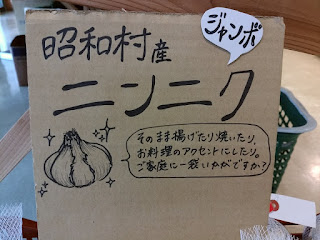 ジャンボ
昭和村産
ニンニク
そのまま揚げたり焼いたり、
お料理のアクセントにしたり。
ご家庭に一袋いかがですか?